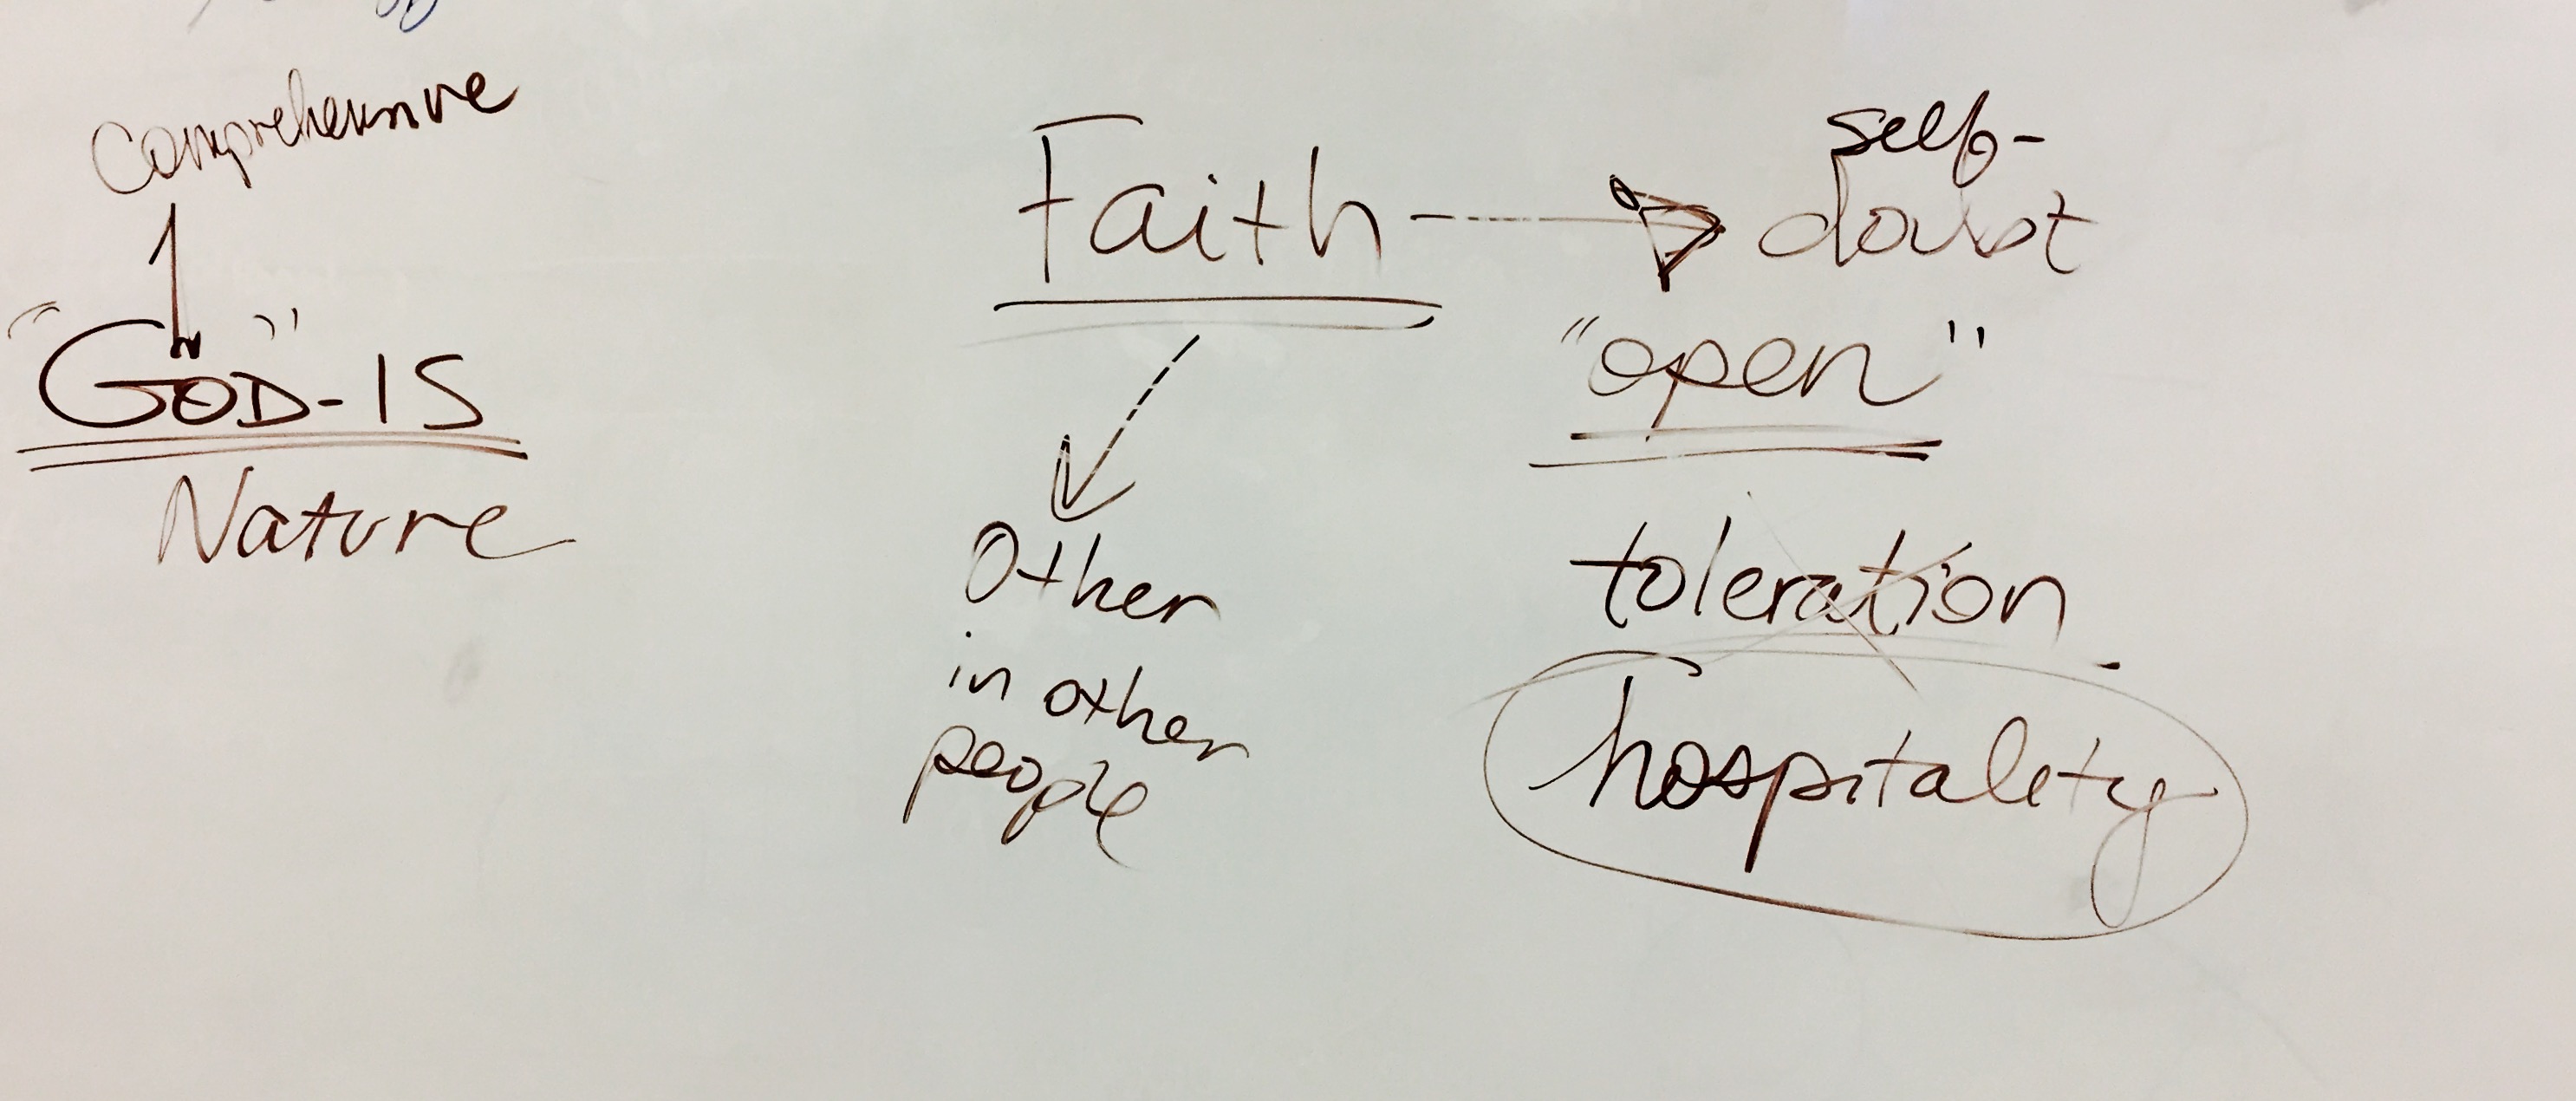 comprehensive
"GOD"-IS
Nature
Faith
Other
in other
people
self-
doubt
"open"
toleration
hospitality